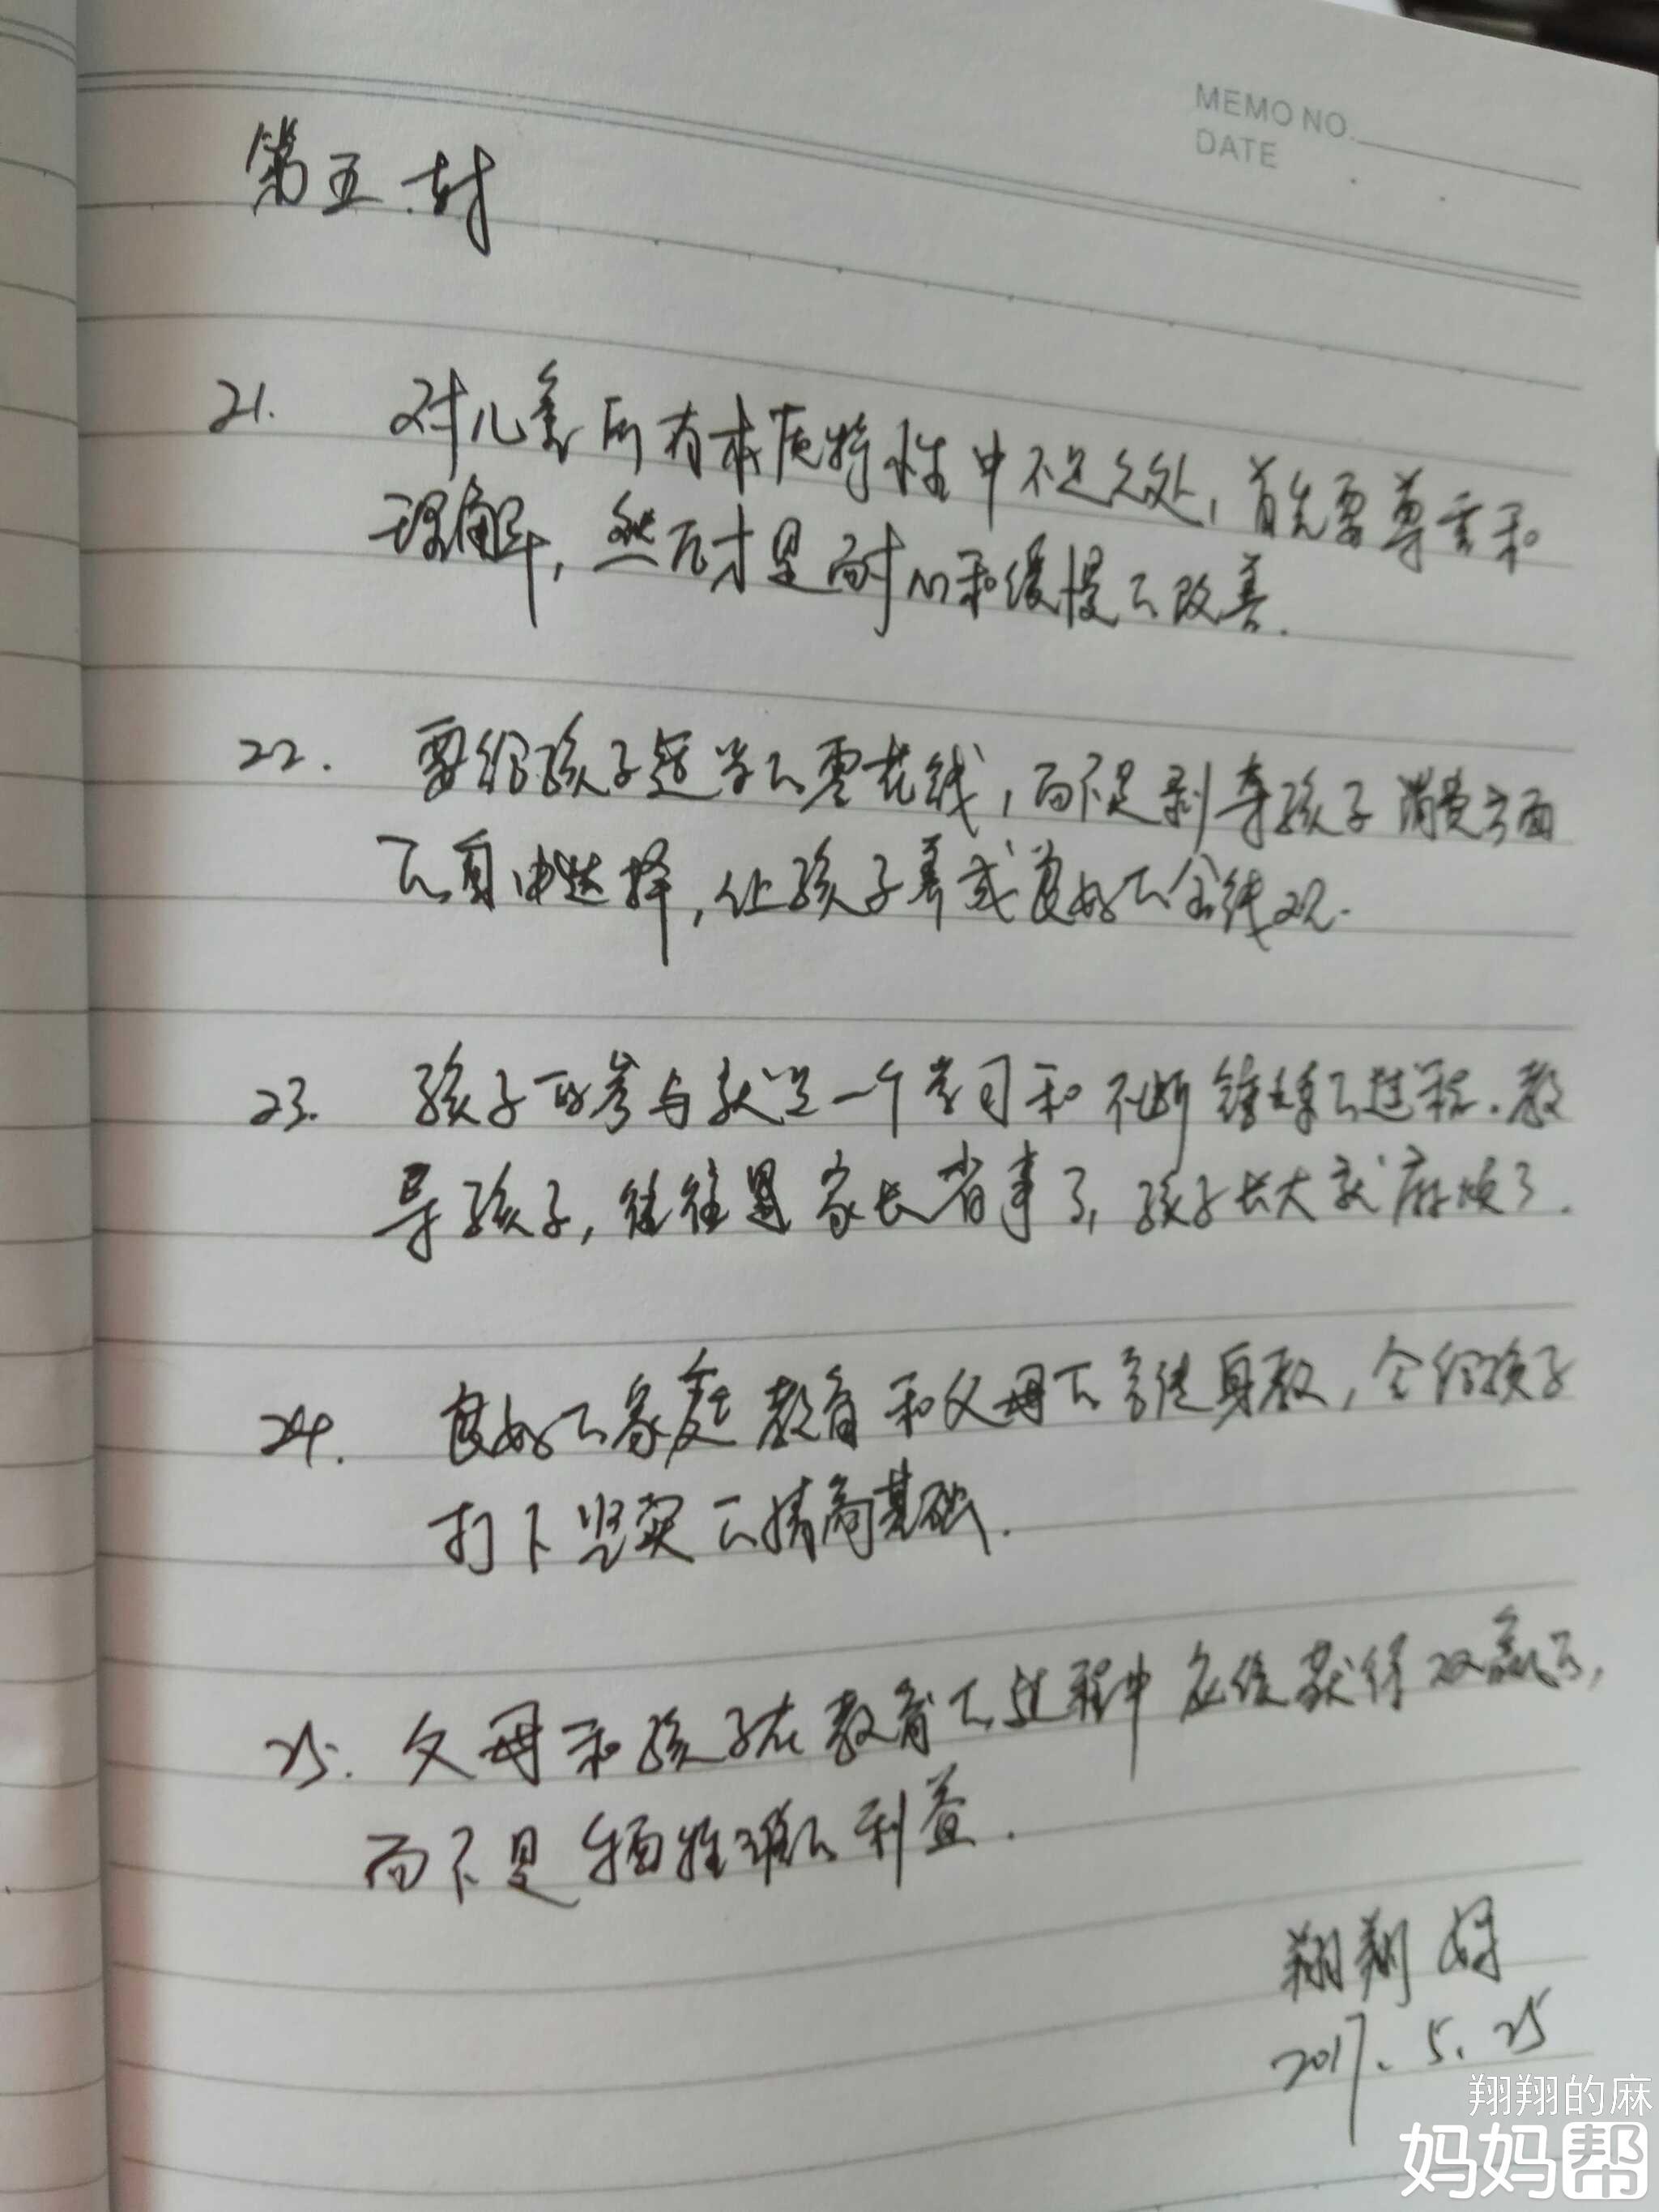 MEMO NO.
DATE
第五封
21. 对儿童所有本质特性中不足之处,首先要尊重和
理解,然后才是耐心和缓慢的改善.
22. 要给孩子适当的零花钱,而不是剥夺孩子消费方面
的自由选择,让孩子养成良好的金钱观.
23. 孩子的参与就是一个学习和不断锤练的过程.教
导孩子,往往是家长省事了,孩子长大就麻烦了.
24. 良好的家庭教育和父母的言传身教,会给孩子
打下坚实的情商基础.
25. 父母和孩子在教育的过程中应该获得双赢的,
而不是牺牲谁的利益.
翔翔妈
2017.5.25
翔翔的麻
妈妈帮